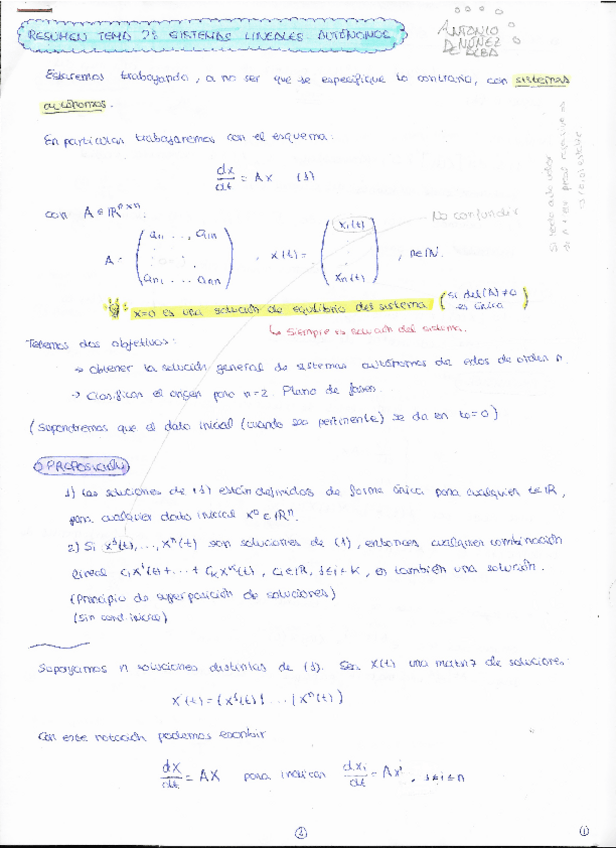 RESUMEN TEMA 2: SISTEMAS LINEALES AUTÓNOMOS
ANTONIO
NÚÑEZ
DE ALBA
Estaremos trabajando, a no ser que se especifique lo contrario, con sistemas
autónomos.
En particular trabajaremos con el esquema:
dx/dt = Ax (1)
con A ∈ ℝⁿˣⁿ:
No confundir
A = ( a₁₁ ..., a₁ₙ ... aₙ₁ ... aₙₙ ) , x(t) = ( x₁(t) ... xₙ(t) ) , n∈ℕ.
x=0 es una solución de equilibrio del sistema ( si det(A) ≠ 0 es única )
↳ Siempre es solución del sistema.
Tenemos dos objetivos:
→ Obtener la solución general de sistemas autónomos de edos de orden n.
→ Clasificar el origen para n=2. Plano de fases.
(Supondremos que el dato inicial (cuando sea pertinente) se da en t₀=0)
PROPOSICIÓN
1) Las soluciones de (1) están definidas de forma única para cualquier t∈ℝ,
para cualquier dato inicial x⁰ ∈ ℝⁿ.
2) Si x¹(t), ..., xⁿ(t) son soluciones de (1), entonces cualquier combinación
lineal c₁x¹(t) + ... + cₖxᵏ(t), cᵢ∈ℝ, 1≤i≤k, es también una solución.
(Principio de superposición de soluciones)
(Sin cond. inicial)
Supongamos n soluciones distintas de (1). Sea X(t) una matriz de soluciones:
X(t) = (x¹(t) | ... | xⁿ(t))
Con esta notación podemos escribir
dX/dt = AX para indicar dxᵢ/dt = Axⁱ, 1≤i≤n
2
1